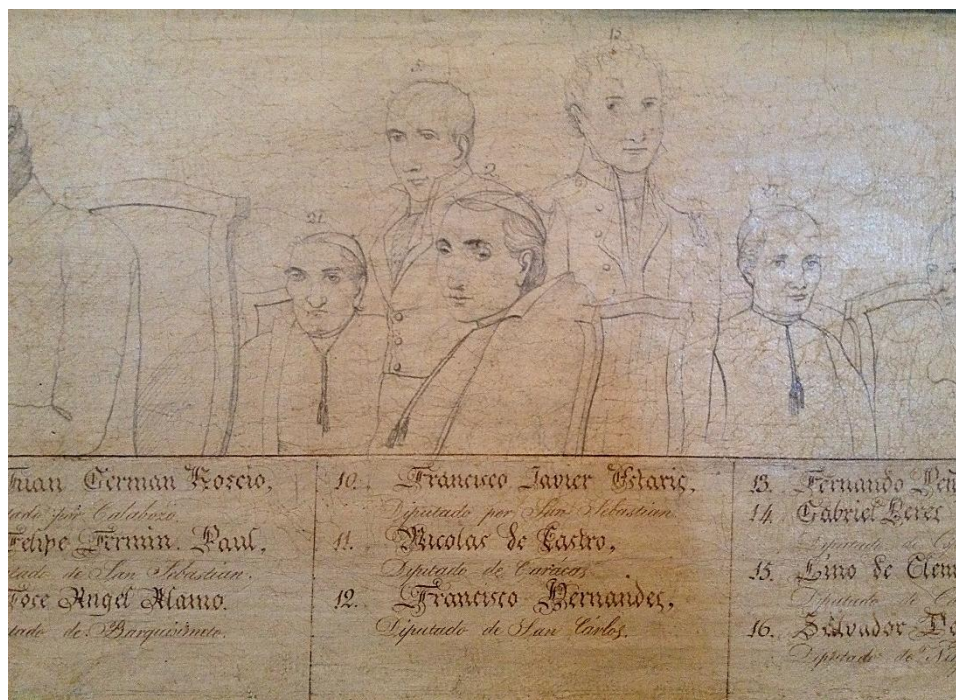 15
21
2
Juan German Roscio,
por Calabozo
Felipe Fermin Paul,
de San Sebastian.
Jose Angel Alamo.
de Barquisimeto.
10. Francisco Javier Ustariz,
Diputado por San Sebastian
11. Nicolas de Castro,
Diputado de Caracas
12. Francisco Hernandez,
Diputado de San Carlos.
13. Fernando
14. Gabriel
Diputado de
15. Lino de
Diputado de
16. Salvador
Diputado de